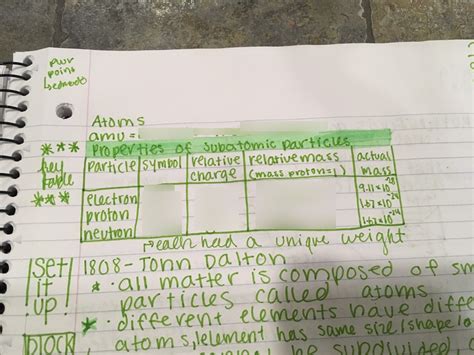 pwr
point
Atoms
amu =
Properties of Subatomic Particles
***
key
table
***
Particle symbol relative charge relative mass (mass proton=1) actual mass
electron 9.11×10
proton 1.67×10⁻²⁴
neutron 1.67×10⁻²⁴
→each had a unique weight
!set
it
up!
1808 - John Dalton
• all matter is composed of
particles called atoms
• different elements have
atoms, element has same size/shape
BLOCK
be subdivided